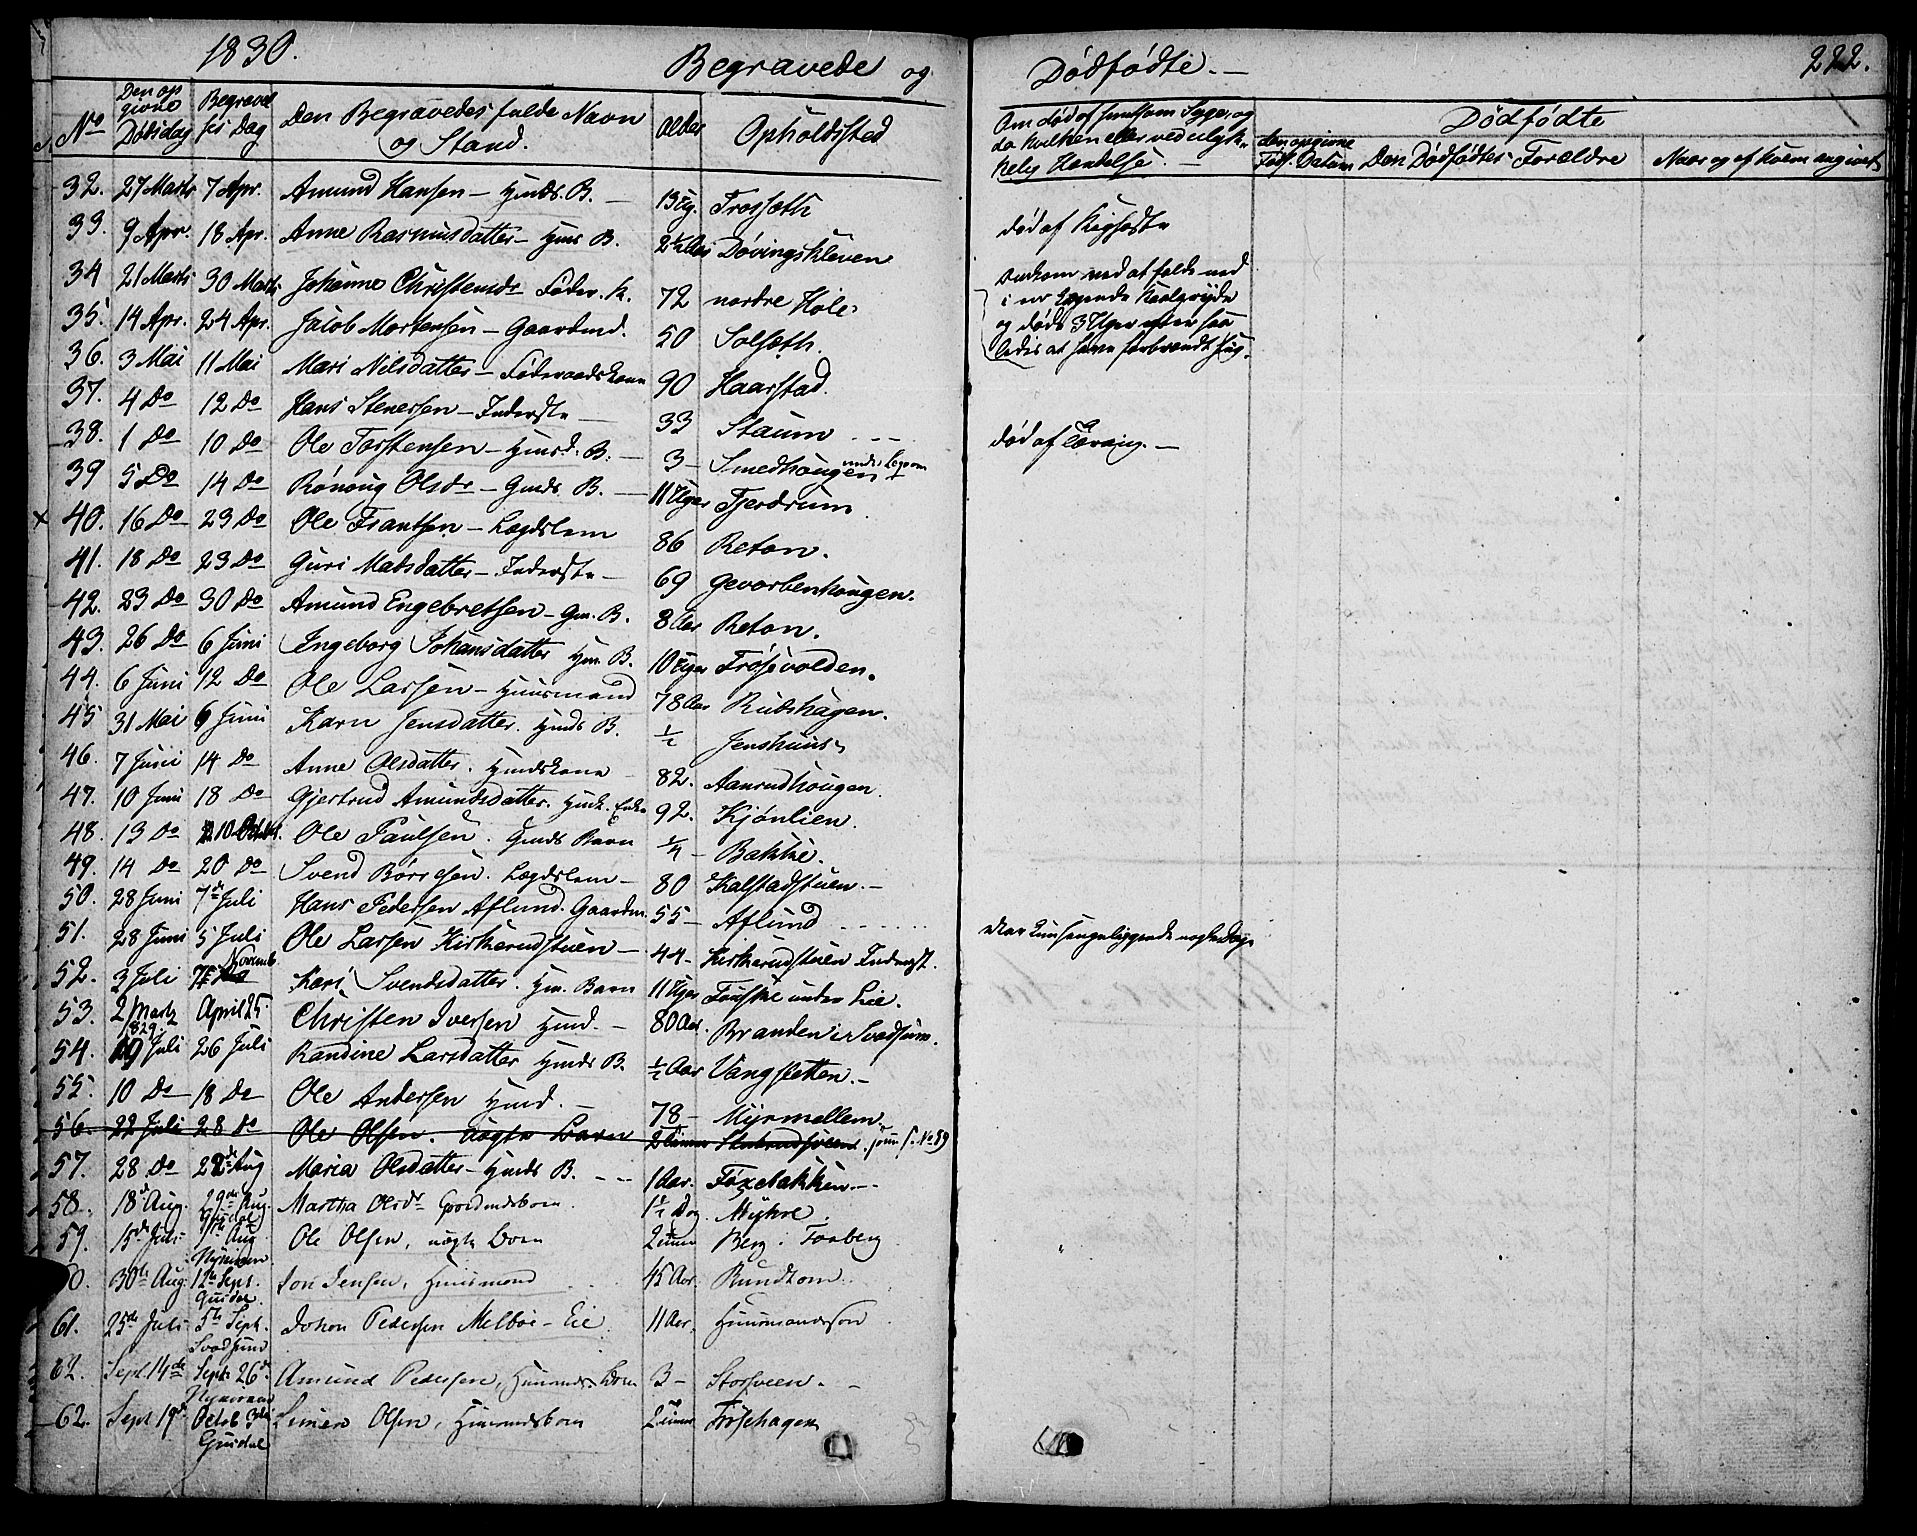 1830.
Begravede og
Dødfødte.
222.
No
Den opgivne Dødsdag
Begravelses Dag
Den Begravedes fulde Navn og Stand.
Alder
Opholdssted
Om død af smitsom Syge, og da hvilken eller ved ulykkelig Hændelse.
Dødfødte
den opgivne Føds. Datum
Den Dødfødtes Forældre
Naar og af hvem angivet
32. 27 Marts 7 Apr. Amund Hansen – Hmds. B. – 13 Ug. Frosseth
33. 9 Apr. 18 Apr. Anne Rasmusdatter – Hmds B. 2 1/2 Aar Døvingskleven død af Kighoste
34 21 Marts 30 Marts Johanne Christensdr Føder. K. 72 nordre Hole omkom ved at falde ned
i en kogende
og døde 3 Uger efter saa
ledes at have forbrændt sig.
35. 14 Apr. 24 Apr. Jacob Mortensen – Gaardmd. 50 Solseth.
36. 3 Mai 11 Mai Mari Nilsdatter – Føderaadskone 90 Haarstad.
37. 4 Do 12 Do Hans Stenersen – Inderste – 33 Staum
38. 1 Do 10 Do Ole Torstensen – Hmsd. B. – 3 – Smedhougen død af Tæring. –
39 5 Do 14 Do Rønoug Olsdr – Gmds. B. – 11 Uger Tjerdrum
40. 16 Do 23 Do Ole Frantsen – Lægdslem 86 Reton.
41. 18 Do 23 Do Guri Madsdatter – Inderste – 69 Gevorbenhougen.
42. 23 Do 30 Do Amund Engebretsen – Gm. B. 8 Aar Reton.
43. 26 Do 6 Juni Ingeborg Johansdatter Hm. B. 10 Uger Frøsevolden.
44. 6 Juni 12 Do Ole Larsen – Huusmand 78 Aar Rudshagen.
45 31 Mai 6 Juni Karn Jensdatter. Hmds B. 1/2 Jenshuus
46. 7 Juni 14 Do Anne Olsdatter. Hmdskone 82. Aanrudhougen.
47. 10 Juni 18 Do Gjertrud Amundsdatter. Enke 92. Kjønlien.
48. 13 Do 10 Octobr. Ole Paulsen. Gmds Barn 1/4 – Bakke.
49. 14 Do 20 Do Svend Børresen. Lægdslem – 80 Kalstadstuen. –
50. 28 Juni 7de Juli Hans Pedersen Aflund. Gaardm. 55 – Aflund
51. 28 Juni 5 Juli Ole Larsen Kirkerudstuen – 44 – Kirkerudstuen Inderst. var kun sengeliggende nogle Dage
52. 3 Juli 7 Novemb. Kari Svendsdatter. Hm. Barn 11 Uger under Lie.
53. 2 Marts 1829. April 25 Christen Iversen Hmd. – 80 Aar. Branden i Svadsum.
54. 19 Juli 26 Juli Randine Larsdatter Hmds B. 1/2 Aar Vangsletten. –
55. 10 Do 18 Do Ole Andersen Hmd. – 78 – Myrmellem.
56. 22 Juli 28 Do Ole Olsen. uægte Barn 2 No 59
57. 28 Do 22de Aug Maria Olsdatter – Hmds B. 1 Aar. Foxebakken
58. 18de Aug. 29de Aug. Gusdal Martha Olsdr Gaardmdsbarn 1 1/2 Dag. Myhre.
59. 15de Juli Aug Nyrnæs Ole Olsen, uægte Barn 2 Berg i Faaberg
60. 30te Aug. 12te Sept. Gusdal. Jon Jensen, Huusmand 45 Aar. Rundtom
61. 25de Juli 5te Sept. Svadsum Johan Pedersen Melbøe – Eie 11 Aar. Huusmandssøn
62. Sept 14de Sept. 26de Amund Pedersen, Huusmds. Barn 3 – Storsveen. –
62. Sept 19de Octob 3die Gusdal Simen Olsen, Huusmdsbarn 2 Frøsehagen